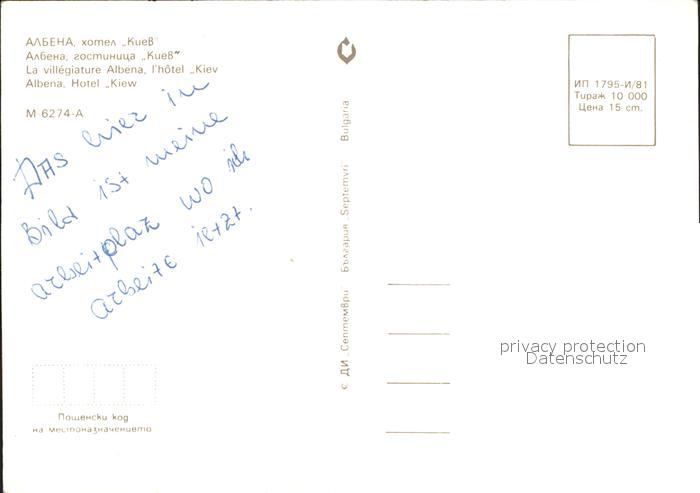 АЛБЕНА, хотел „Киев“
Албена, гостиница „Киев“
La villégiature Albena, l'hôtel „Kiev
Albena, Hotel „Kiew
М-6274-А
DAS hier im
Bild ist meine
arbeitplaz wo ich
arbeite jetzt.
Пощенски код
на местоназначението
с ДИ „Септември България „Septemvri Bulgaria
ИП 1795-И/81
Тираж 10 000
Цена 15 ст.
privacy protection
Datenschutz